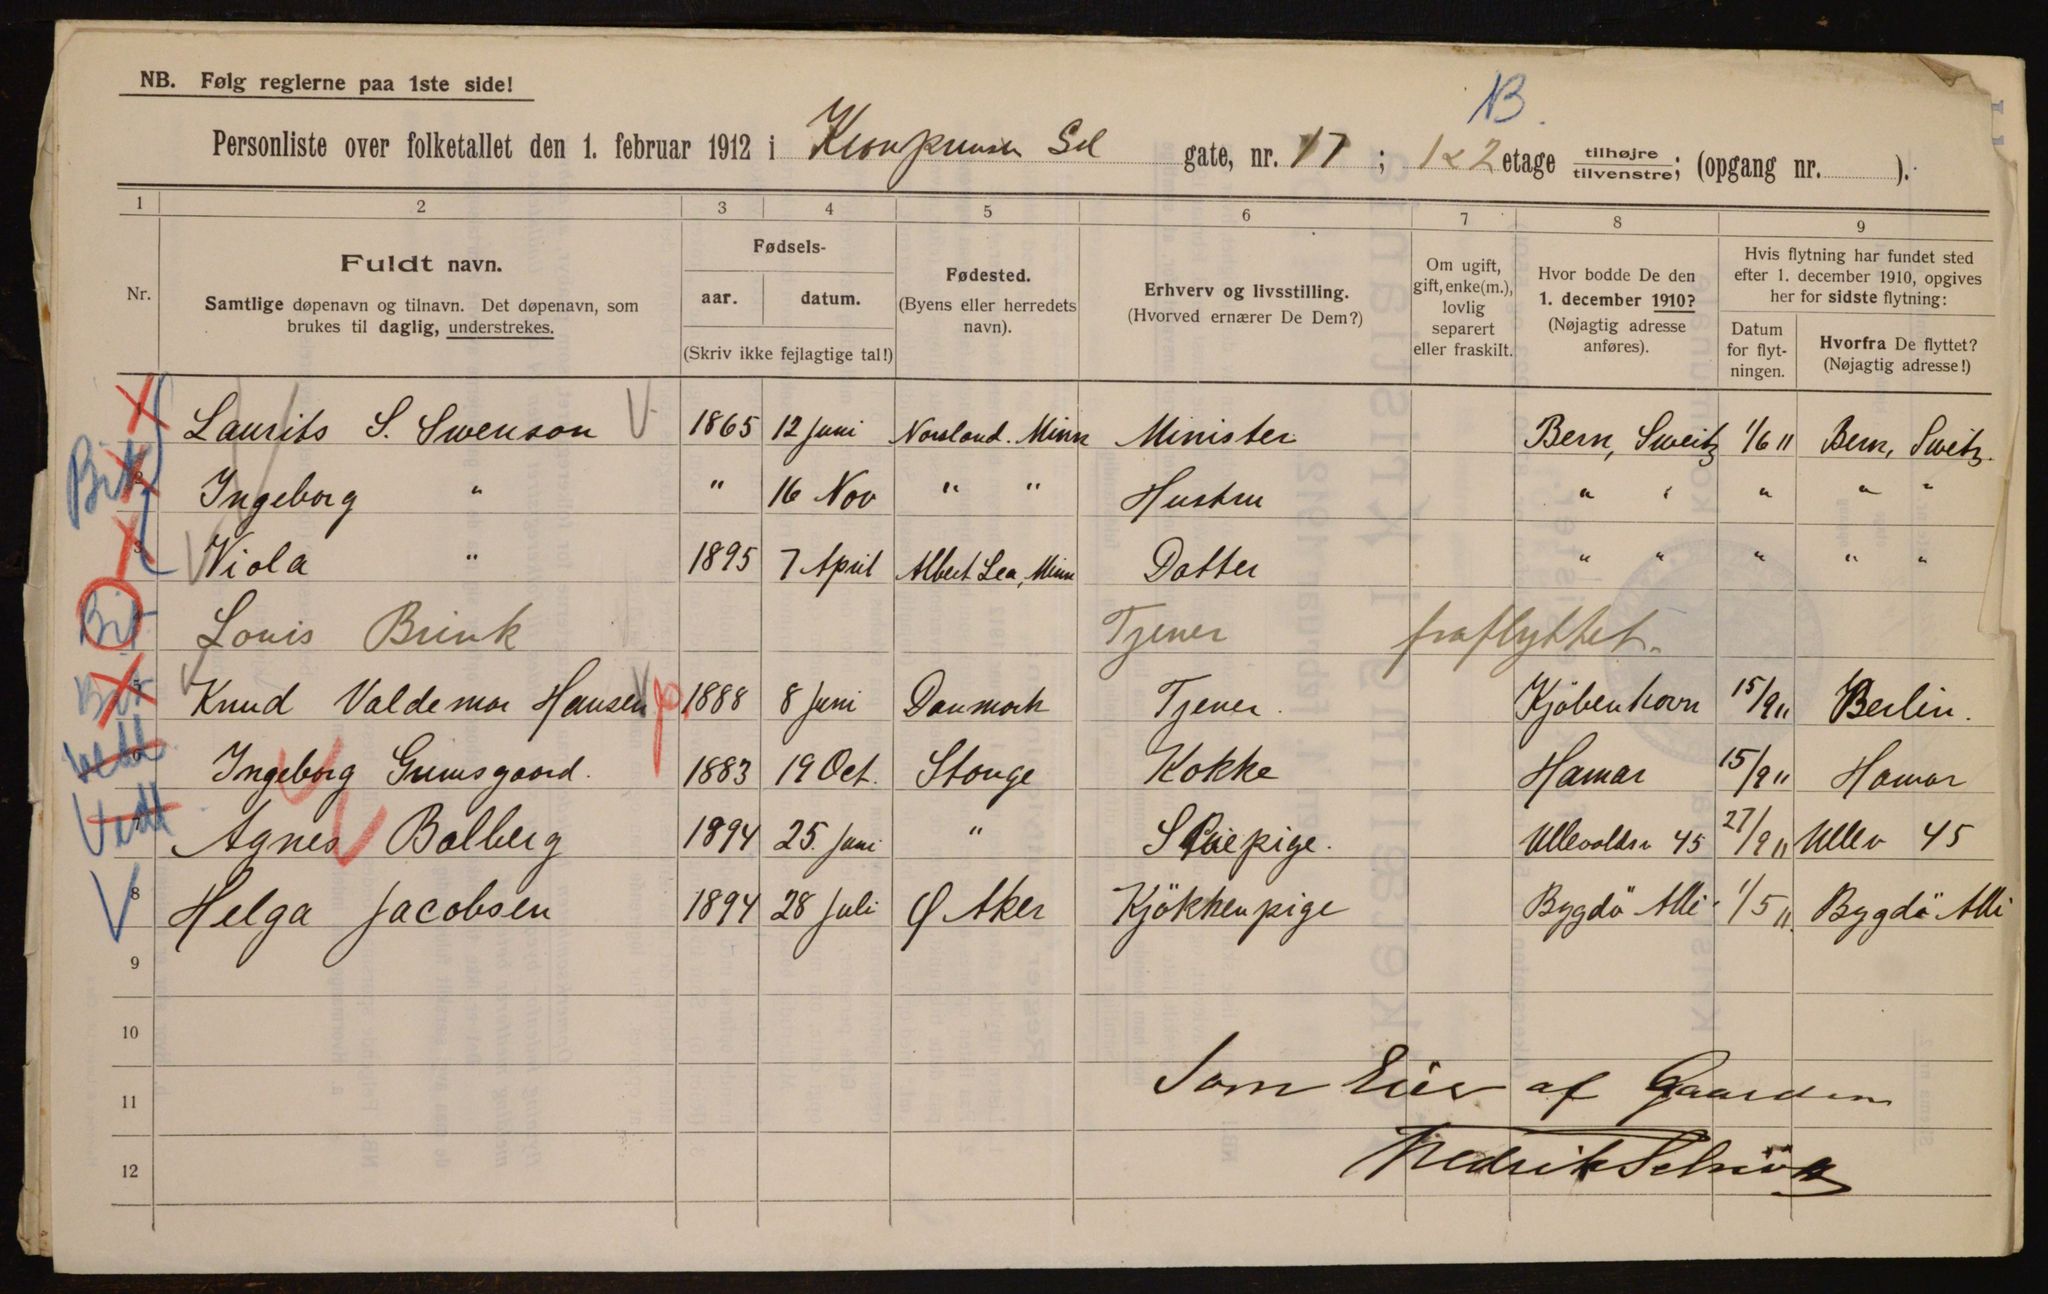 NB. Følg reglerne paa 1ste side!
NB.
Personliste over folketallet den 1. februar 1912 i gate, nr. 17; 1 & 2 etage tilhøjre tilvenstre; (opgang nr. ).
1 2 3 4 5 6 7 8 9
Nr. Fuldt navn. Samtlige døpenavn og tilnavn. Det døpenavn, som brukes til daglig, understrekes.
Fødsels- aar. datum. (Skriv ikke fejlagtige tal!)
Fødested. (Byens eller herredets navn).
Erhverv og livsstilling. (Hvorved ernærer De Dem?)
Om ugift, gift, enke(m.), lovlig separert eller fraskilt.
Hvor bodde De den 1. december 1910? (Nøjagtig adresse anføres).
Hvis flytning har fundet sted efter 1. december 1910, opgives her for sidste flytning:
Datum for flytningen. Hvorfra De flyttet? (Nøjagtig adresse!)
1 Laurits S. Swenson 1865 12 Juni Norsland. Minn Minister Bern, Sweitz 1/6 11 Bern, Sweitz.
2 Ingeborg " " 16 Nov " " Hustru " " " " "
3 Viola " 1895 7 April Albert Lea, Minn Datter " " " " "
Louis Brink Tjener fraflyttet.
5 Knud Valdemar Hansen 1888 8 Juni Danmark Tjener. Kjöbenhavn 15/9 11 Berlin.
6 Ingeborg Grimsgaard. 1883 19 Oct. Stange Kokke Hamar 15/9 11 Hamar
7 Agnes Bolberg 1894 25. Juni " Stuepige. Ullevoldsv 45 27/9 11 Ullev 45
8 Helga Jacobsen 1894 28 Juli Ø Aker Kjökkenpige Bygdö Alli 1/5 11. Bygdö Alli
9
10
11 Som Eier af Gaarden
12 Fredrik